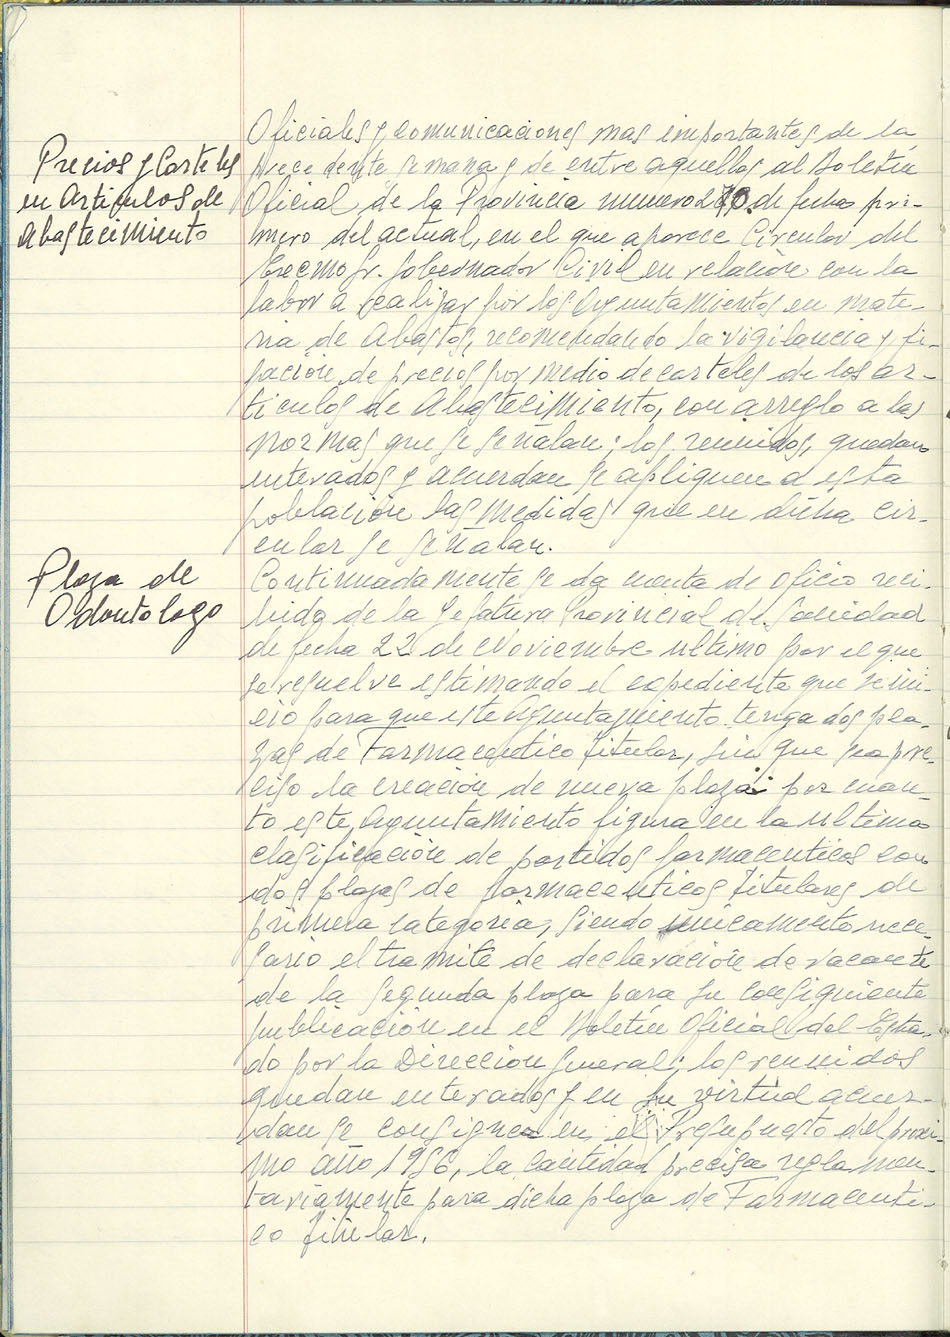 Precios y Carteles
en Articulos de
Abastecimiento
Oficiales y comunicaciones mas importantes de la
precedente semana y de entre aquellos al Boletin
Oficial de la Provincia numero 270 de fecha pri-
mero del actual, en el que aparece Circular del
Excmo Sr. Gobernador Civil en relación con la
labor a realizar por los Ayuntamientos en mate-
ria de Abastos, recomendando la vigilancia y fi-
jación de precios por medio de carteles de los ar-
ticulos de Abastecimiento, con arreglo a las
normas que se señalan; los reunidos, quedan
enterados y acuerdan se apliquen a esta
población las medidas que en dicha cir-
cular se señalan.
Plaza de
Odontologo
Continuadamente se da cuenta de oficio reci-
bido de la Jefatura Provincial de Sanidad
de fecha 22 de Noviembre ultimo por el que
se resuelve estimando el expediente que se ini-
cio para que este Ayuntamiento tenga dos pla-
zas de Farmaceutico titular, sin que sea pre-
ciso la creación de nueva plaza por cuan-
to este Ayuntamiento figura en la ultima
clasificación de partidos farmaceuticos con
dos plazas de farmaceuticos titulares de
primera categoria, siendo unicamente nece-
sario el tramite de declaración de vacante
de la segunda plaza para su consiguiente
publicación en el Boletin Oficial del Esta-
do por la Dirección General; los reunidos
quedan enterados y en su virtud acuer-
dan se consigne en el Presupuesto del proxi-
mo año 1956, la cantidad precisa reglamen-
tariamente para dicha plaza de Farmaceuti-
co titular.